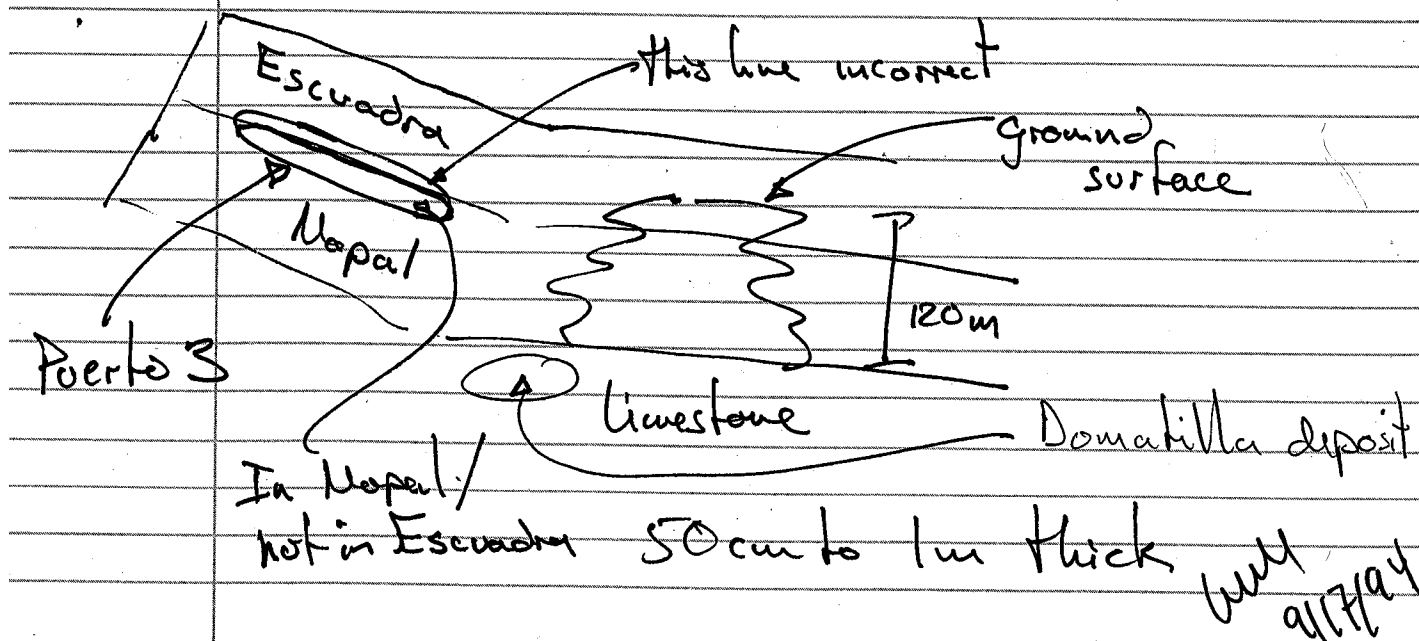 Escuadra
this line incorrect
Ground
surface
Nopal
120m
Puerto 3
limestone
Domatilla deposit
In Nopal
not in Escuadra
50cm to 1m thick
9/17/94